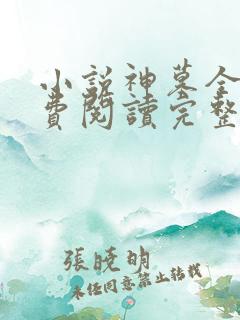 小説神墓全
費閱讀完整
張曉明
未經同意禁止轉載